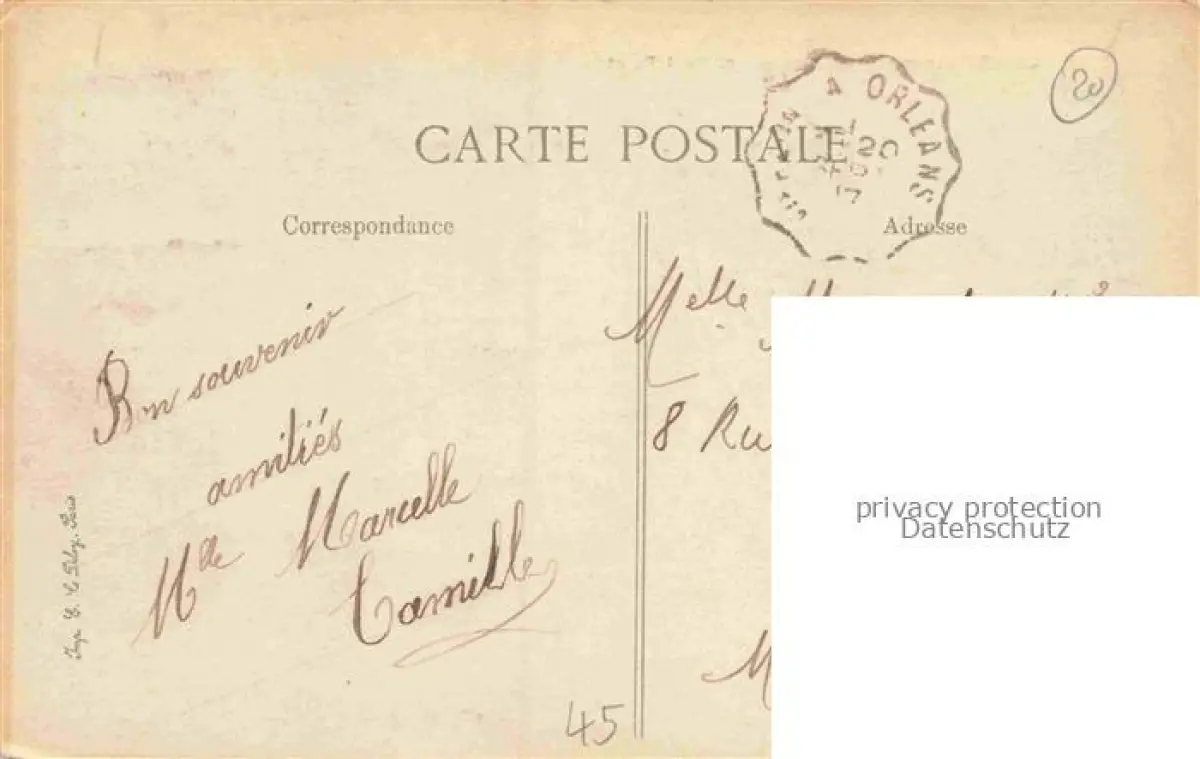 CARTE POSTALE
A ORLEANS
20
20
Correspondance
Adresse
Bon souvenir
amitiés
Mde Marcelle
Camille
Melle
8 Ru
M
privacy protection
Datenschutz
Imp. Paris
45